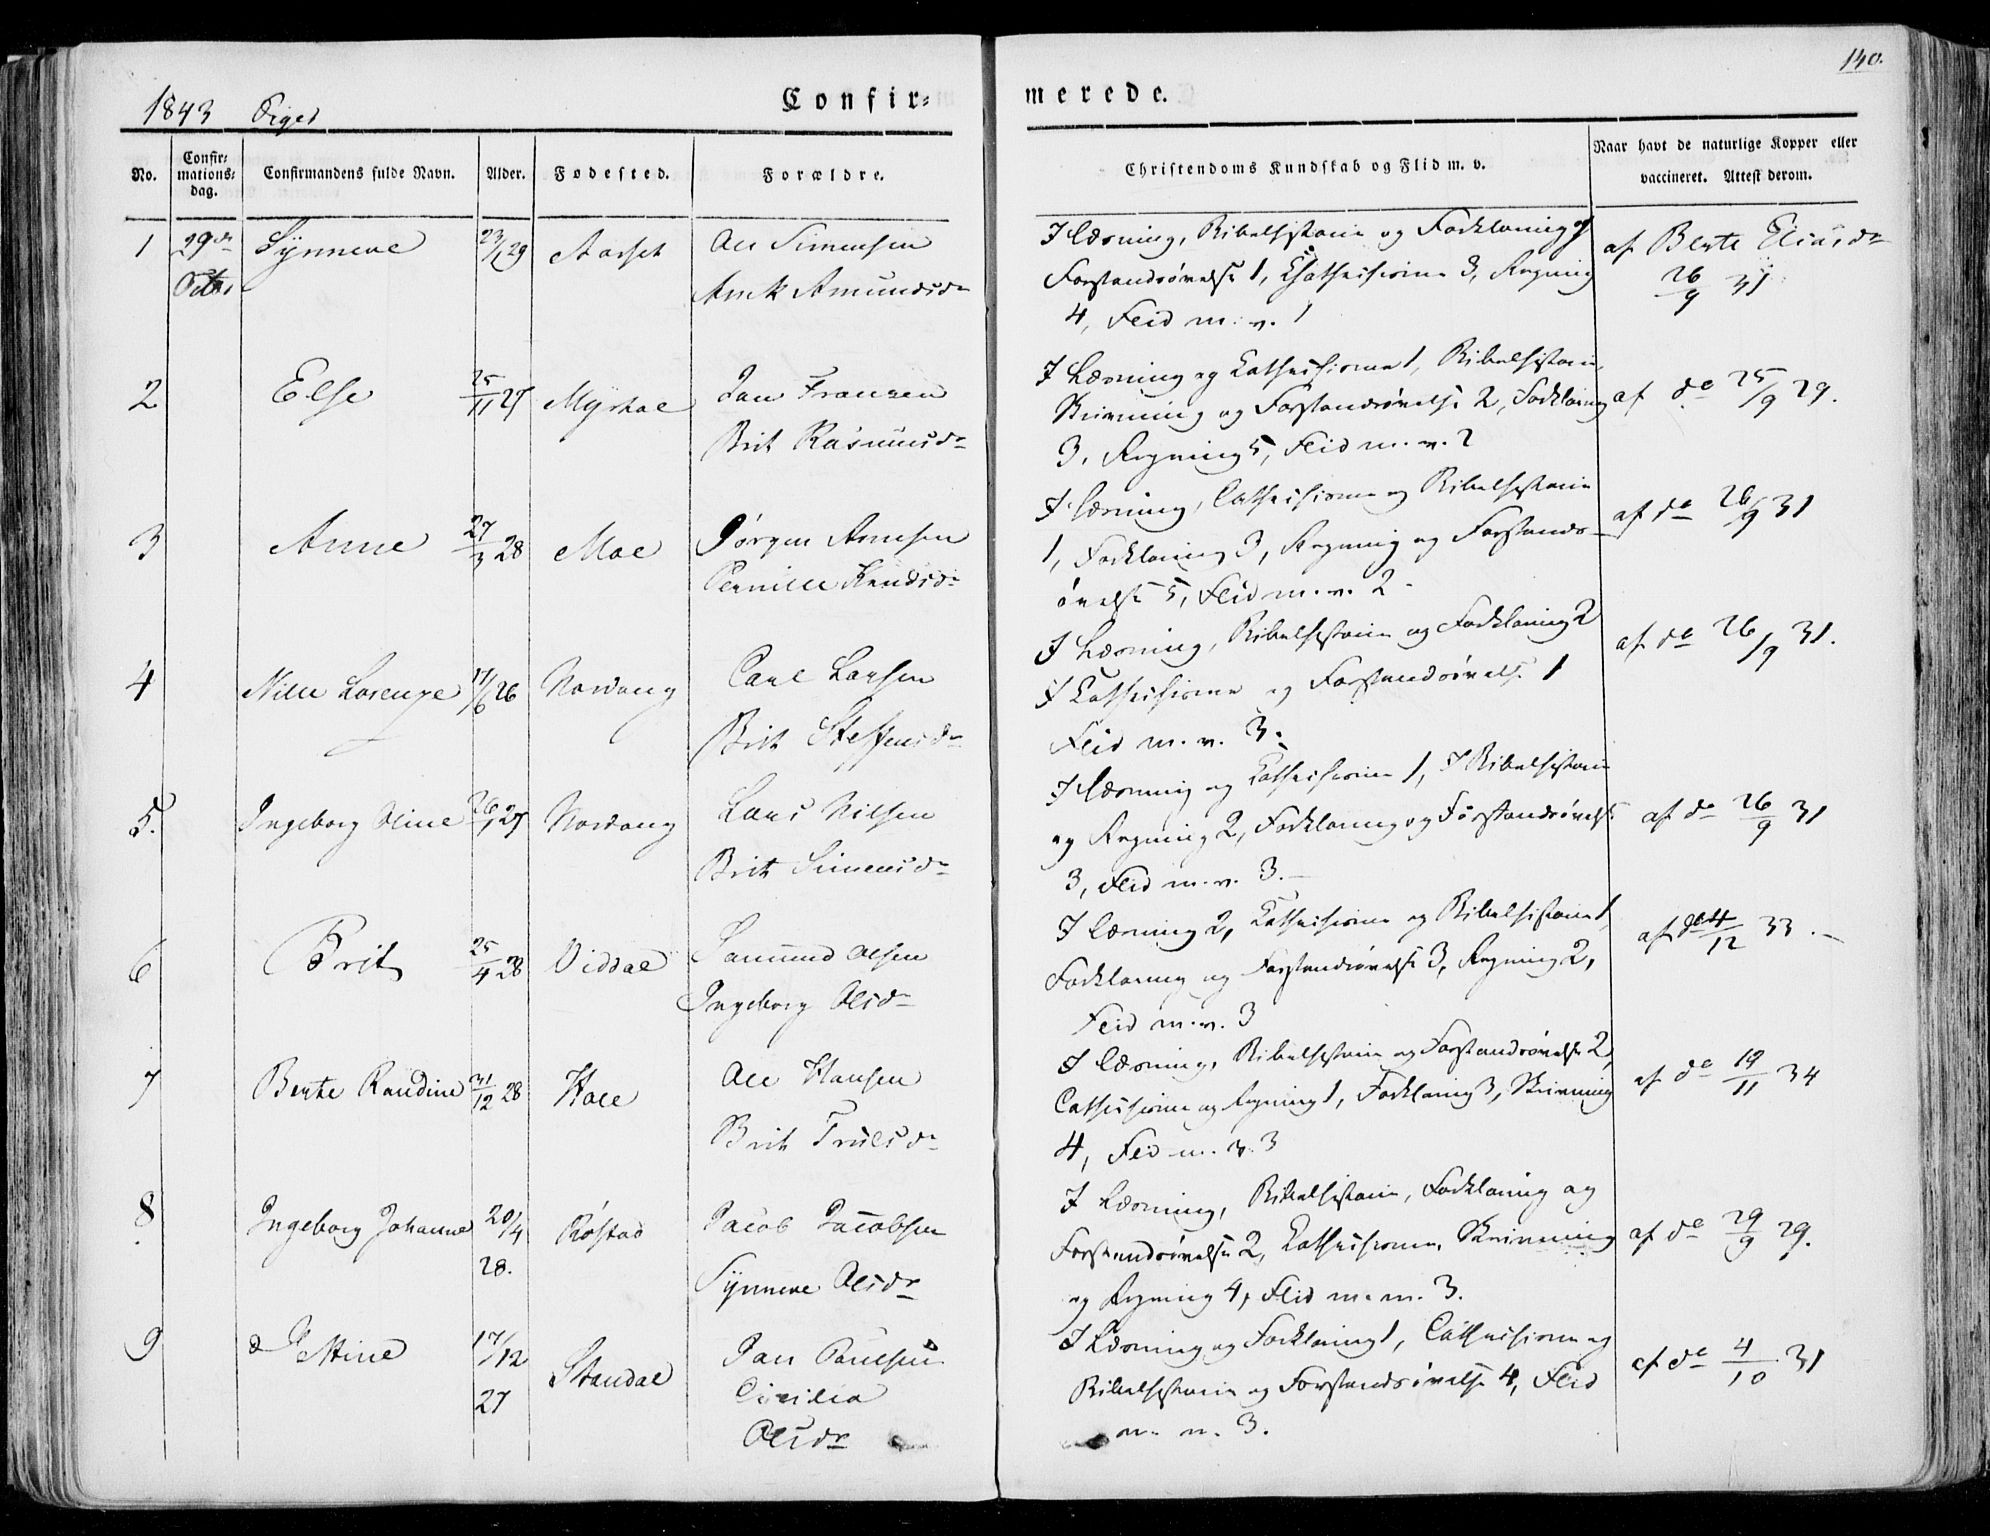 140.
1843 Piger
Confir-
merede.
No.
Confir-
mations-
dag.
Confirmandens fulde Navn.
Alder.
Fødested.
Forældre.
Christendoms Kundskab og Flid m. v.
Naar havt de naturlige Kopper eller
vaccineret. Attest derom.
1 29de Synneve 23/1 29 Aarset Ole Simensen
Octbr Amundsdr
I Læsning, Bibelhistorie og Forklaring og
Forstandsøvelse 1, Cathechisme 3, Regning
4, Flid m. v. 1
af Berte Eliasdr
26/9 31
2 Else 25/11 27 Myhtal Jan Franzen
Brit Rasmusdr
I Læsning og Cathechisme 1, Bibelhistorie,
Skrivning og Forstandsøvelse 2, Forklaring
3, Regning 5, Flid m. v. 2
af do 25/9 29.
3 Anne 27/3 28 Moe Jørgen Arnesen
Pernille Knudsdr
I Læsning, Cathechisme og Bibelhistorie
1, Forklaring 3, Regning og Forstands-
øvelse 5, Flid m. v. 2
af do 26/9 31
4 Nille Lorenze 17/6 26 Nordang Carl Larsen
Brit Steffensdr
I Læsning, Bibelhistorie og Forklaring 2
I Cathechisme og Forstandsøvelse 1
Flid m. v. 3.
af do 26/9 31.
5. Ingeborg Oline 26/1 27 Nordang Lars Nilsen
Brit Simensdr
I Læsning og Cathechisme 1, I Bibelhistorie
og Regning 2, Forklaring og Forstandsøvelse
3, Flid m. v. 3.
af do 26/9 31
6 Brit 25/4 28 Viddal Samund Olsen
Ingeborg Olsdr
I Læsning 2, Cathechisme og Bibelhistorie 1,
Forklaring og Forstandsøvelse 3, Regning 2,
Flid m. v. 3
af do 4/12 33.
7 Berte Randine 31/12 28 Hole Ole Hansen
Brit Trulsdr
I Læsning, Bibelhistorie og Forstandsøvelse 2,
Cathechisme og Regning 1, Forklaring 3, Skrivning
4, Flid m. v. 3
af do 19/11 34
8 Ingeborg Johanne 20/4 Røstad Jacob Jacobsen
28. Synneve Olsdr
I Læsning, Bibelhistorie, Forklaring og
Forstandsøvelse 2, Cathechisme, Skrivning
og Regning 4, Flid m. m. 3.
af do 29/9 29.
9 Jettine 17/12 Standal Jan Paulsen
27 Cicilia
Olsdr
I Læsning og Forklaring 1, Cathechisme og
Bibelhistorie og Forstandsøvelse 4, Flid
m. m. 3.
af do 4/10 31